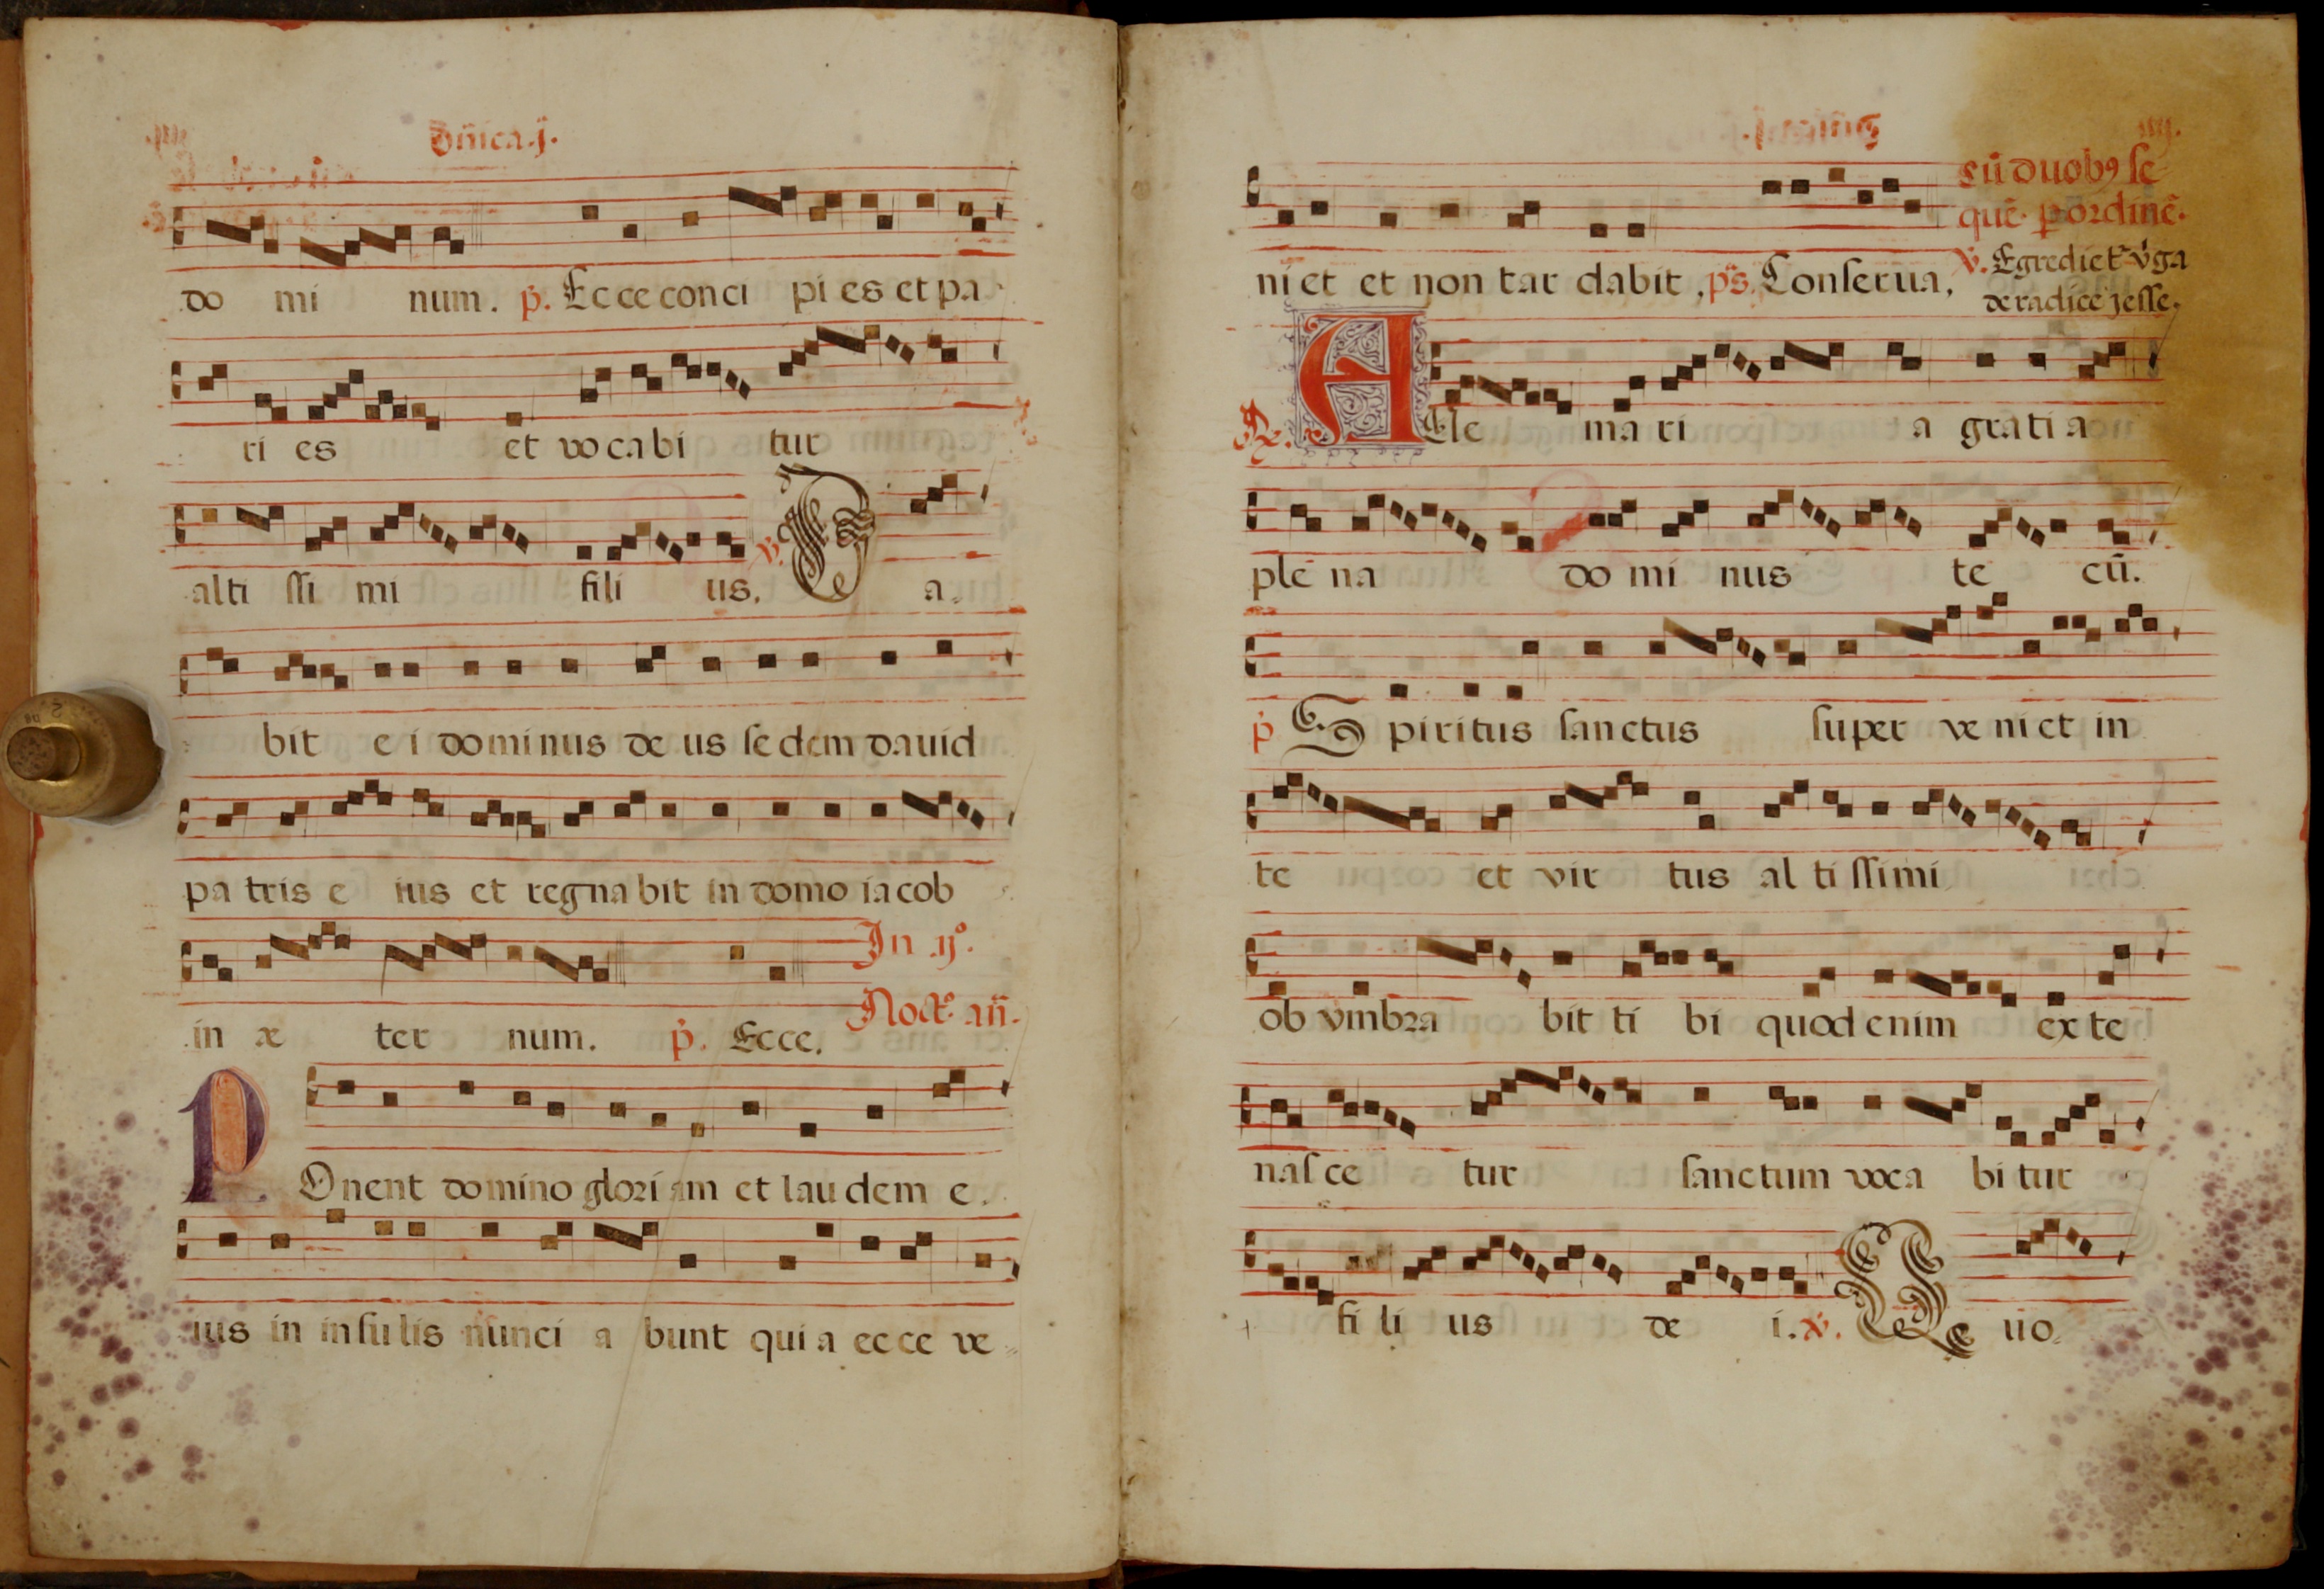 Dñica .j.
do mi num. p̃. Ecce conci pi es et pa
ri es et vo ca bi tur
alti ssi mi fili us. v̄. D a.
bit e i dominus de us sedem dauid
pa tris e ius et regna bit in domo iacob
in æ ter num. p̃. Ecce. In .ij°.
Noct° añ.
POnent domino gloriam et laudem e.
ius in insulis nunci a bunt qui a ecce ve
cũ duobꝰ se
quẽ. p ordinẽ.
ni et et non tar dabit, ps. Conserua, v̄. Egrediet᷑ v̄ga
de radice jesse.
℞. AUe ma ri a grati a
ple na do mi nus te cũ.
p̃ Spiritus sanctus super ve ni et in
te et vir tus al tissimi
ob vmbra bit ti bi quod enim ex te
nasce tur sanctum voca bi tur
fi li us de i. v̄. Q uo.